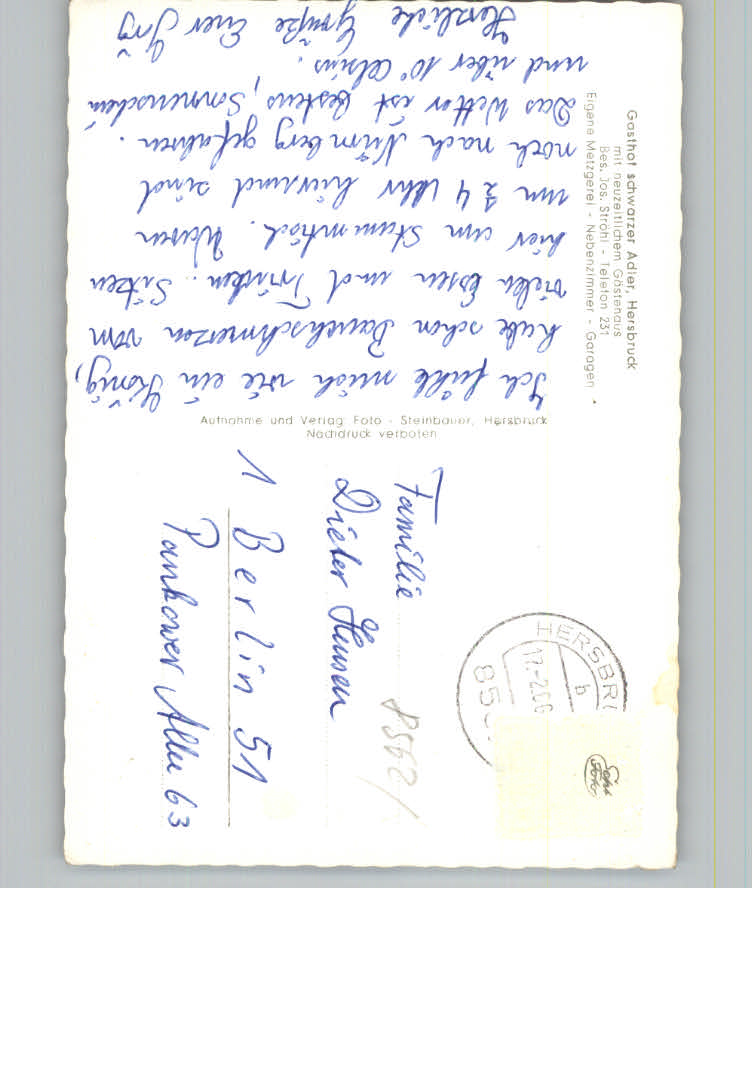 Gasthof schwarzer Adler, Hersbruck
mit neuzeitlichem Gästehaus
Bes. Jos. Ströhl - Telefon 231
Eigene Metzgerei - Nebenzimmer - Garagen
Ich fühle mich wie ein König,
habe schon Bauchschmerzen vom
vielen Essen und Trinken. Sitzen
hier am Stammtisch. Waren
um 14 Uhr hier und sind
noch nach Nürnberg gefahren.
Das Wetter ist bestens, Sonnenschein
und über 10° Celsius.
Herzliche Grüße Euer
Aufnahme und Verlag: Foto - Steinbauer, Hersbruck
Nachdruck verboten
Familie
Dieter Hensen
1 Berlin 51
Pankower Allee 63
HERSBRU
17.-2.66
b
85